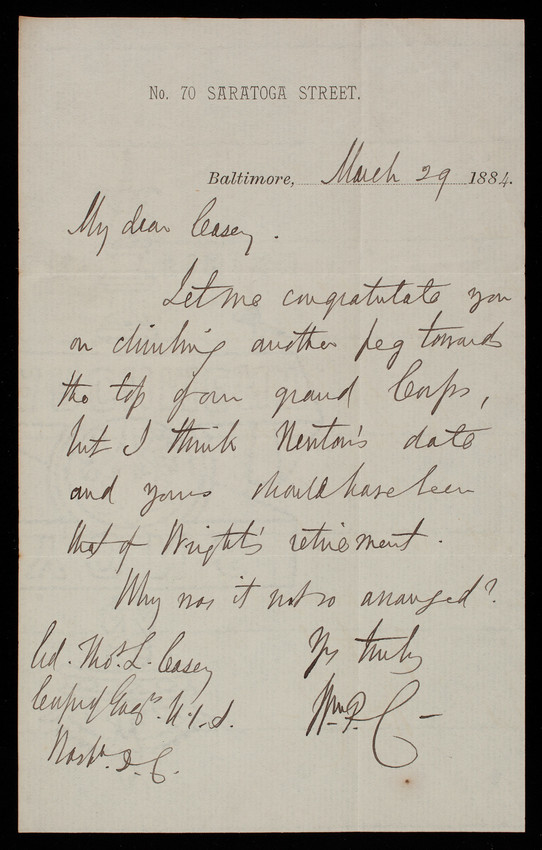 No. 70 SARATOGA STREET.
Baltimore, March 29 1884.
My dear Casey.
Let me congratulate you
on climbing another peg towards
the top of our grand Corps,
but I think Newton's date
and yours should have been
that of Wright's retirement.
Why was it not so arranged?
Yrs truly
Wm. P. C
Col. Thos. L. Casey
Corps of Engrs. U.S.A.
Washn. D.C.